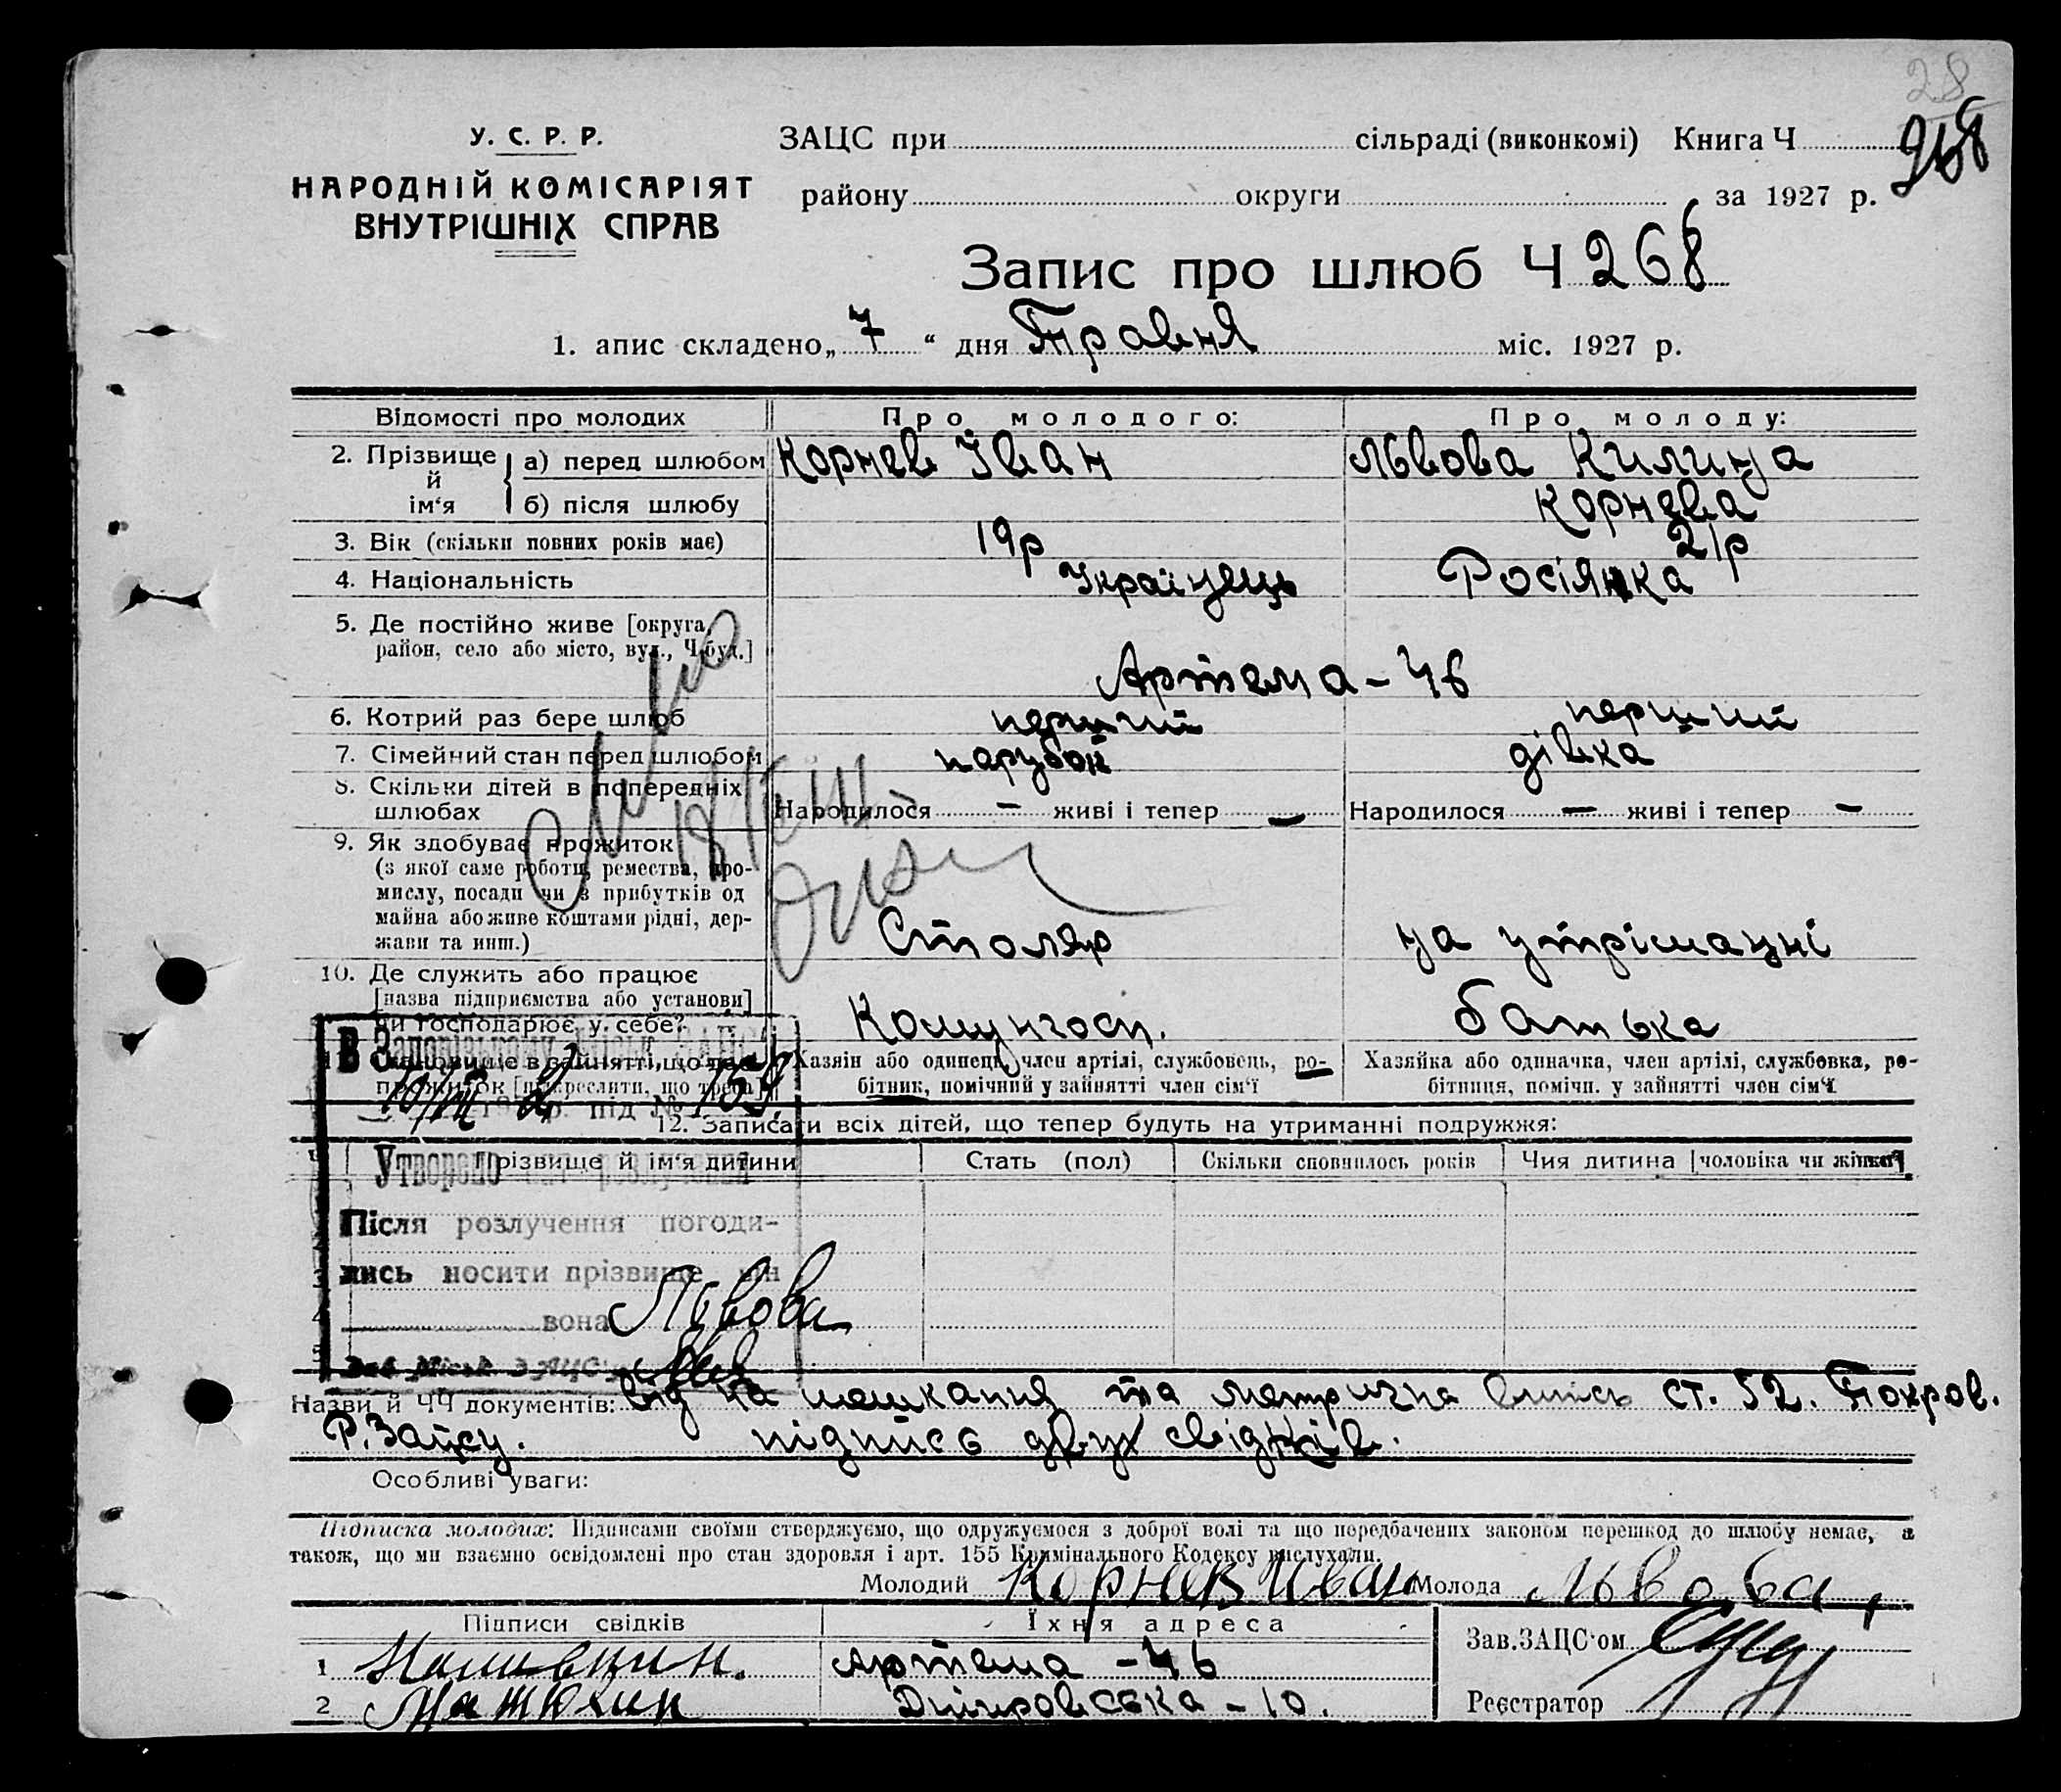 28
268
У. С. Р. Р.
НАРОДНІЙ КОМІСАРІЯТ
ВНУТРІШНІХ СПРАВ
ЗАЦС при сільраді (виконкомі) Книга Ч
району округи за 1927 р.
Запис про шлюб Ч 268
1. апис складено „ 7 “ дня Травня міс. 1927 р.
Відомості про молодих Про молодого: Про молоду:
2. Прізвище й ім‘я а) перед шлюбом Корнев Іван Львова Килина
б) після шлюбу Корнева
3. Вік (скільки повних років має) 19р 21р
4. Національність Українець Росіянка
5. Де постійно живе [округа,
район, село або місто, вул., Ч буд.]
Артема - 46
6. Котрий раз бере шлюб перший перший
7. Сімейний стан перед шлюбом парубок дівка
8. Скільки дітей в попередніх
шлюбах Народилося — живі і тепер — Народилося — живі і тепер —
9. Як здобуває прожиток
(з якої саме роботи, ремества, про-
мислу, посади чи з прибутків од
майна або живе коштами рідні, дер-
жави та инш.) Столяр на утріманні
10. Де служить або працює
[назва підприємства або установи]
чи господарює у себе? Комунгосп. батька
становище в зайнятті, що дає Хазяін або одинець, член артілі, службовець, ро- Хазяйка або одиначка, член артілі, службовка, ро-
прожиток [підкреслити, що треба] бітник, помічний у зайнятті член сім‘ї бітниця, помічн. у зайнятті член сім‘ї
В Запорізькому Міськ ЗАЦС
під № 159
12. Записати всіх дітей, що тепер будуть на утриманні подружжя:
Прізвище й ім‘я дитини Стать (пол) Скільки сповнилось років Чия дитина [чоловіка чи жінки]
Утворено розлучення
Після розлучення погоди-
лись носити прізвище він
вона Львова
Зав Міськ ЗАЦС
3
4
5
Назви й ЧЧ документів: на мешкання та метрична випись ст. 52. Покров.
Р. Зацсу. підписс двух свідків.
Особливі уваги:
Підписка молодих: Підписами своїми стверджуємо, що одружуємося з доброї волі та що передбачених законом перешкод до шлюбу немає, а
також, що ми взаємно освідомлені про стан здоровля і арт. 155 Кримінального Кодексу вислухали.
Молодий Корнев Иван Молода Львова
Підписи свідків Їхня адреса Зав. ЗАЦС‘ом
1 Артема - 46
2 Дніпровська - 10. Реєстратор